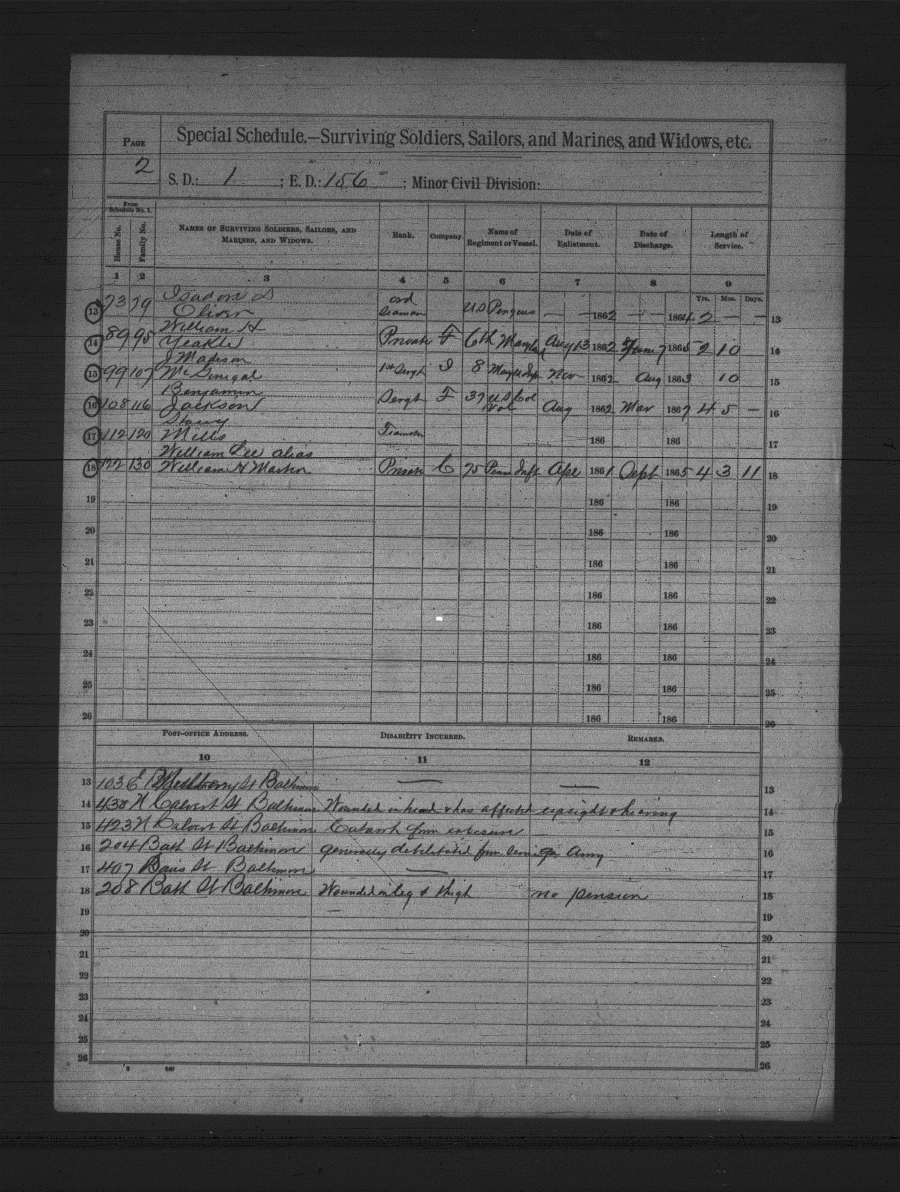 Page
2
Special Schedule.—Surviving Soldiers, Sailors, and Marines, and Widows, etc.
S. D.: 1 ; E. D.: 156 ; Minor Civil Division:
From Schedule No. 1.
House No. Family No. Names of Surviving Soldiers, Sailors, and Marines, and Widows. Rank. Company Name of Regiment or Vessel. Date of Enlistment. Date of Discharge. Length of Service.
1 2 3 4 5 6 7 8 9
Yrs. Mos. Days.
Isadore D
13 73 79 Oliver ord Seaman US Penguin — — 1862 — — 1864 2 — — 13
William H
14 89 95 Yeakle Private F 6th Maryland Aug 13 1862 June 7 1865 2 10 14
J Madison
15 99 107 1st Sergt I 8 Nov 1862 Aug 1863 10 15
Benjamin
16 108 116 Jackson Sergt F 39 US Col Vol Aug 1862 Mar 1867 4 5 — 16
17 112 120 Mills 186 186 17
William Lee alias
18 122 130 William H Martin Private C 75 Penn Inft Apl 1861 Sept 1865 4 3 11 18
19 186 186 19
20 186 186 20
21 186 186 21
22 186 186 22
23 186 186 23
24 186 186 24
25 186 186 25
26 186 186 26
Post-office Address. Disability Incurred. Remarks.
10 11 12
13 103 E Mulberry St Baltimore — — 13
14 430 N Calvert St Baltimore Wounded in head & has affected eyesight & hearing 14
15 423 N Calvert St Baltimore Catarrh from 15
16 204 Bath St Baltimore generally debilitated from Army 16
17 407 Davis St Baltimore — 17
18 208 Bath St Baltimore Wounded in leg & thigh no pension 18
19 — 19
20 20
21 21
22 22
23 23
24 24
25 25
26 26